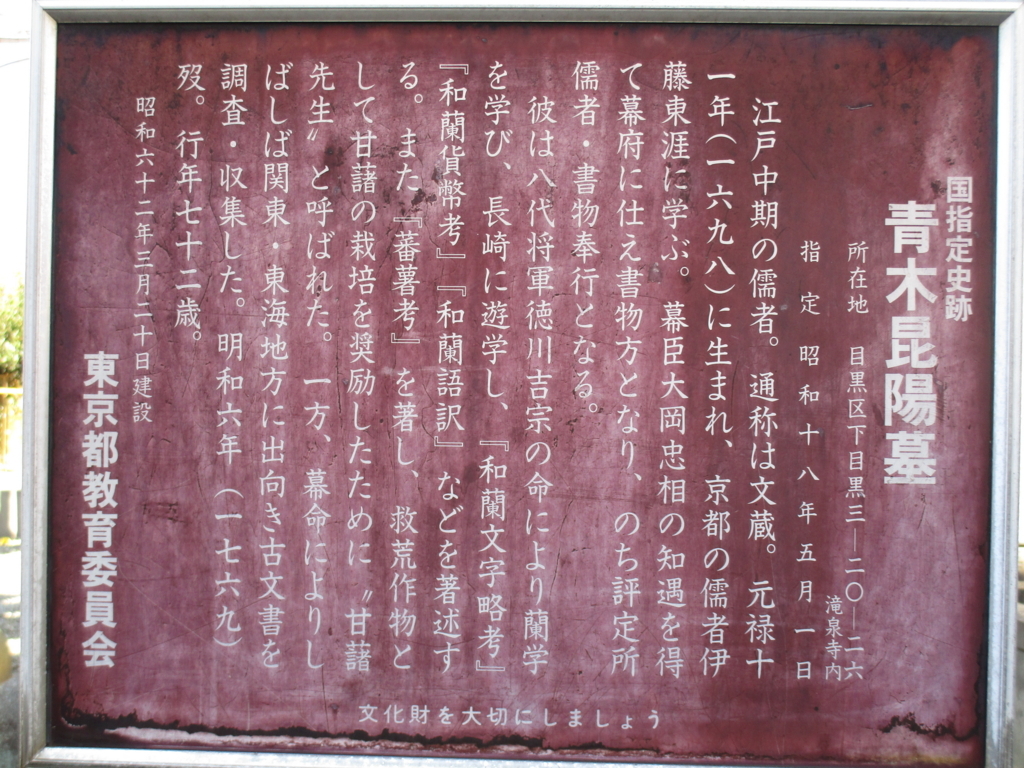 国指定史跡
青木昆陽墓
所在地　目黒区下目黒三―二〇―二六
滝泉寺内
指定　昭和十八年五月一日
江戸中期の儒者。通称は文蔵。元禄十
一年（一六九八）に生まれ、京都の儒者伊
藤東涯に学ぶ。幕臣大岡忠相の知遇を得
て幕府に仕え書物方となり、のち評定所
儒者・書物奉行となる。
彼は八代将軍徳川吉宗の命により蘭学
を学び、長崎に遊学し、『和蘭文字略考』
『和蘭貨幣考』『和蘭語訳』などを著述す
る。また『蕃薯考』を著し、救荒作物と
して甘藷の栽培を奨励したために〝甘藷
先生〟と呼ばれた。一方、幕命によりし
ばしば関東・東海地方に出向き古文書を
調査・収集した。明和六年（一七六九）
歿。行年七十二歳。
昭和六十二年三月二十日建設
東京都教育委員会
文化財を大切にしましょう